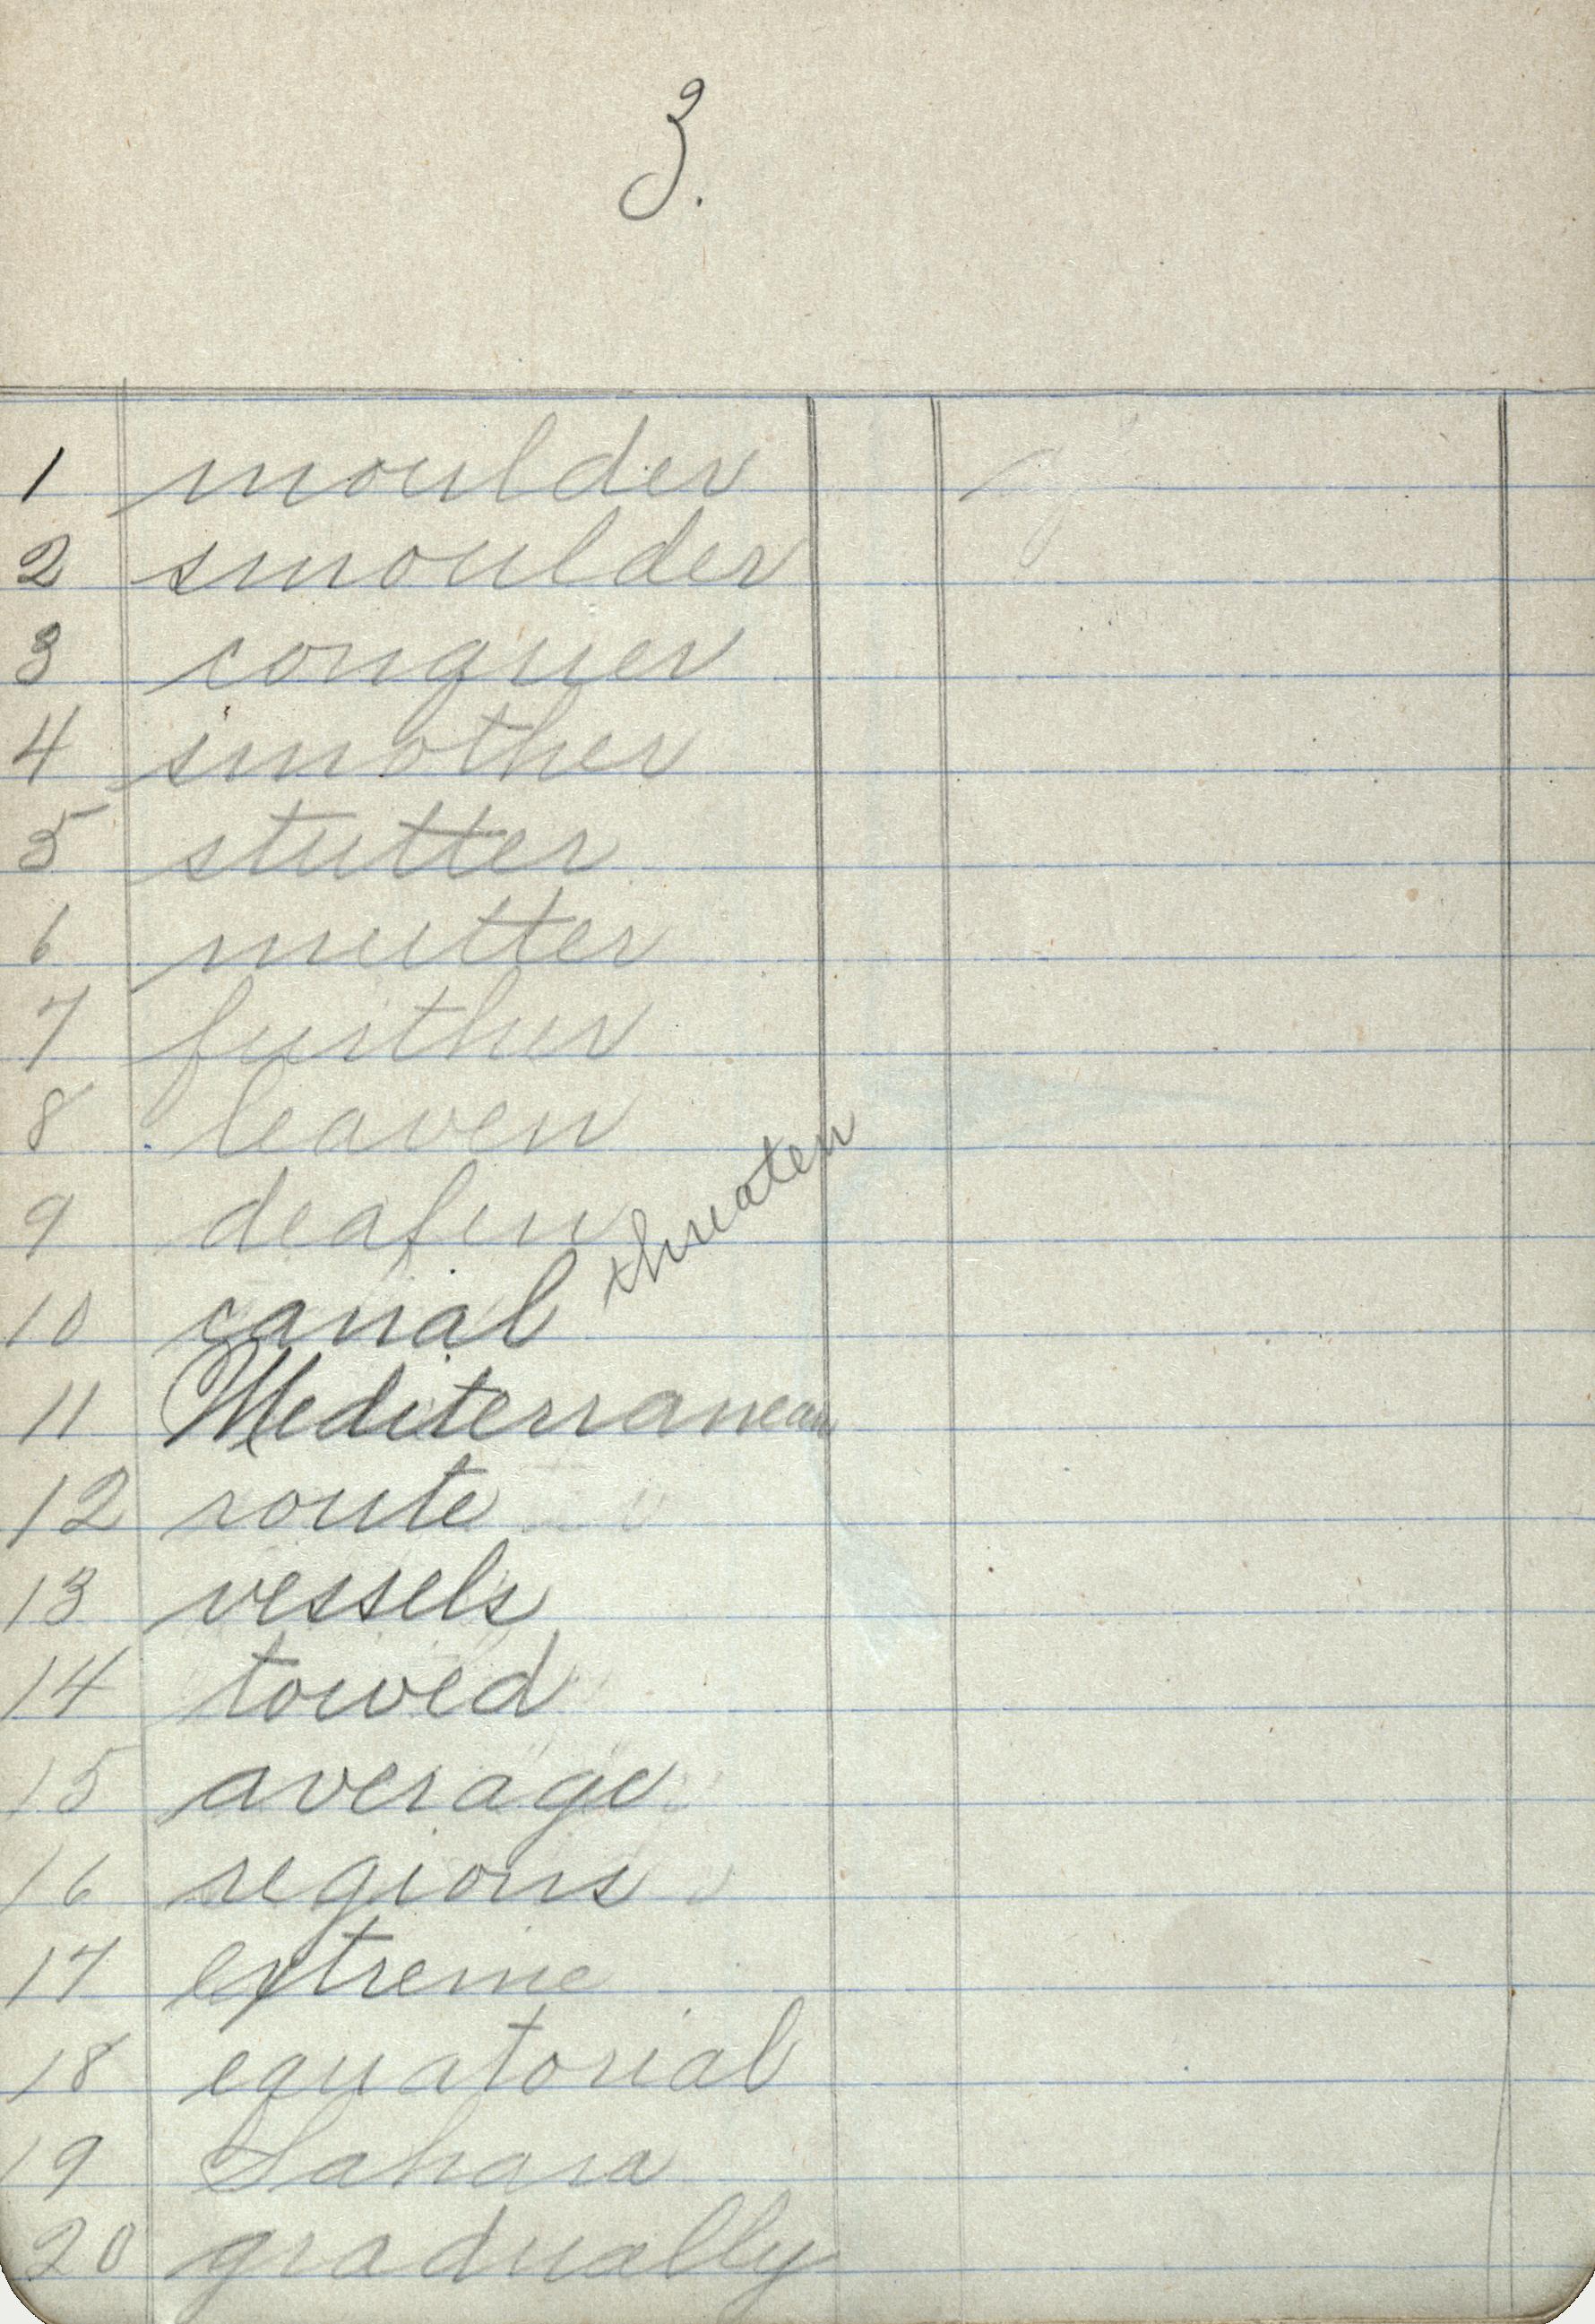 3.
1 moulder
2 smoulder
3 conquer
4 smother
5 stutter
6 mutter
7 further
8 leaven
9 deafen
threaten
10 canal
11 Mediterranean
12 route
13 vessels
14 towed
15 average
16 regions
17 extreme
18 equatorial
19 Sahara
20 gradually